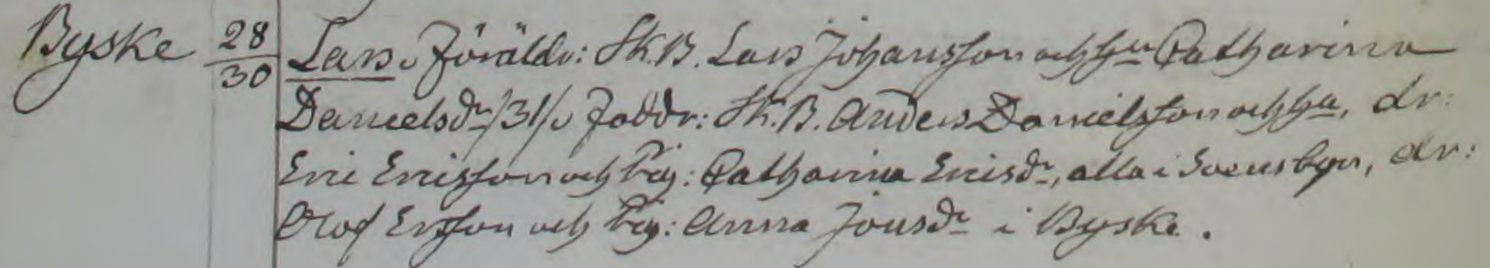 Byske 28/30 Lars, Föräldr: Sk.B. Lars Johansson och hu Catharina
Danielsdr /31/, Faddr: Sk.B. Anders Danielsson och hu, dr:
Eric Ericsson och pig: Catharina Ericsdr, alla i Svensbyn, dr:
Olof Ersson och pig: Anna Jonsdr i Byske.